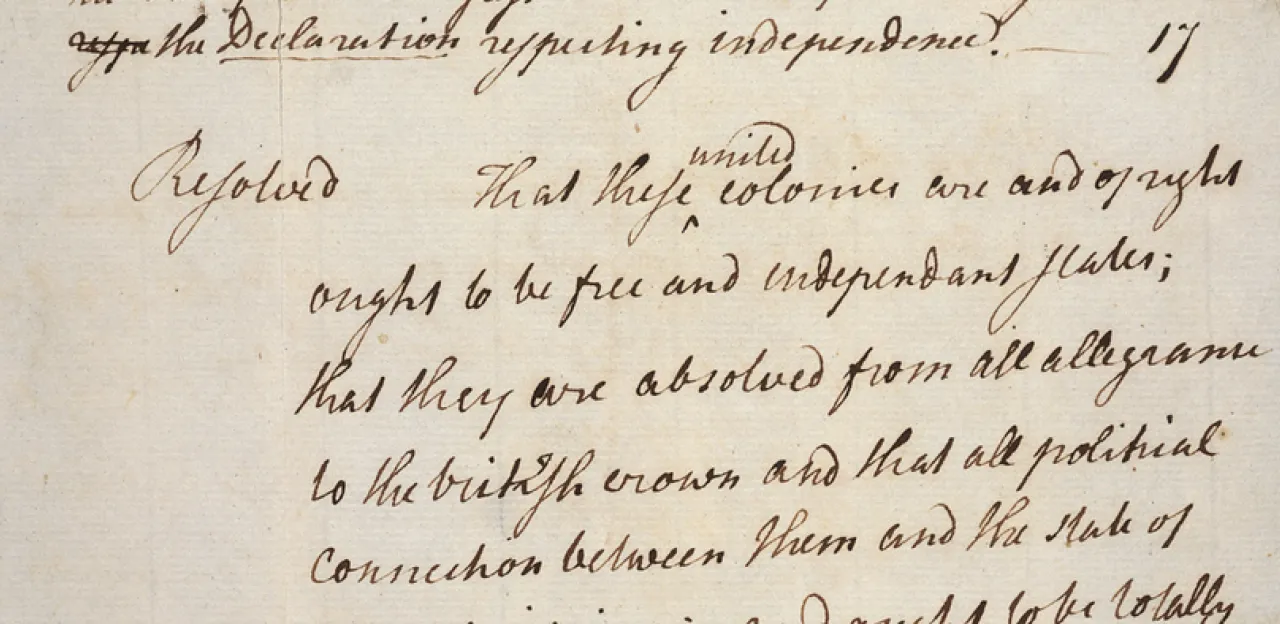 respe the Declaration respecting independence. 17
united
Resolved That these ^ colonies are and of right
ought to be free and independant states;
that they are absolved from all allegiance
to the british crown and that all political
connection between them and the state of
and ought to be totally